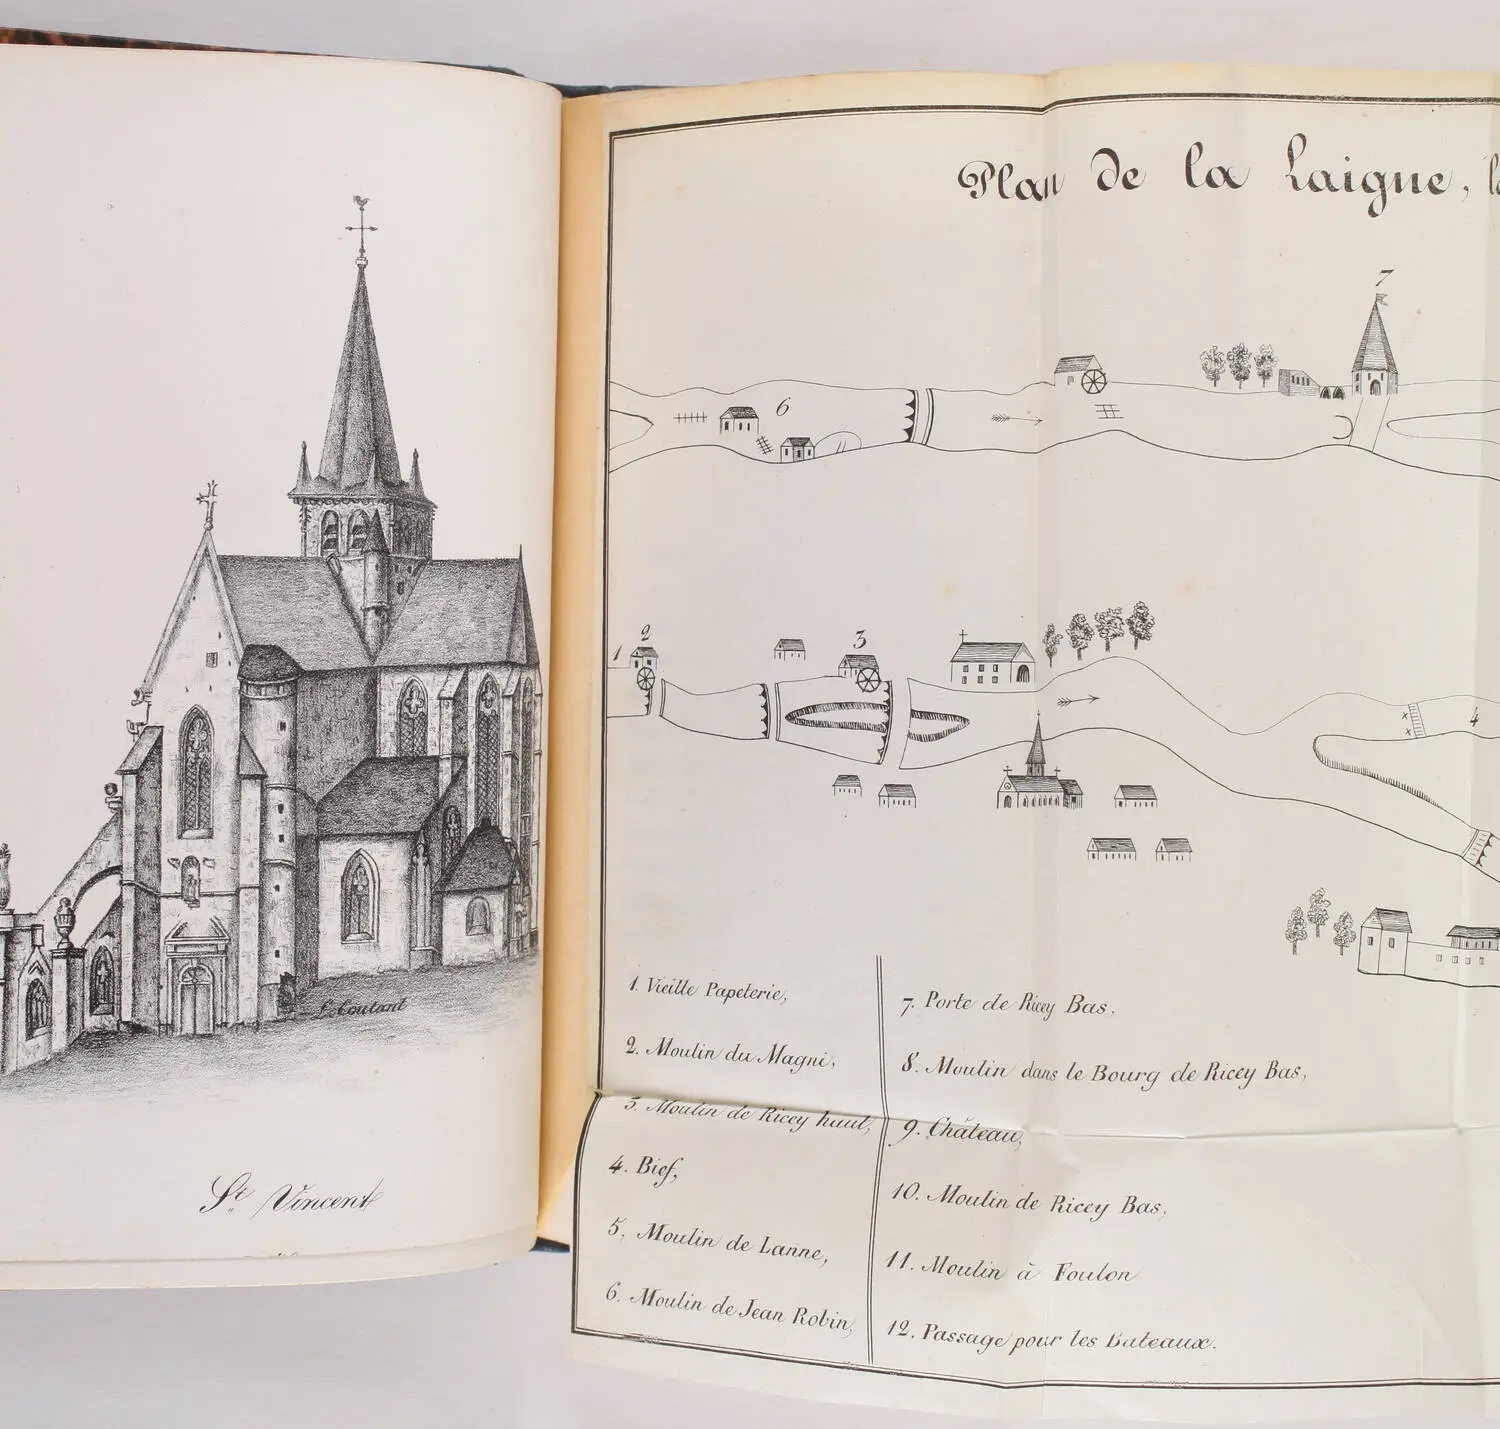 L. Coutant
St. Vincent
Plan de la Laigne,
7
6
1
2
3
4
1. Vieille Papeterie,
2. Moulin du Magni,
3. Moulin de Ricey haut,
4. Bief,
5, Moulin de Lanne,
6. Moulin de Jean Robin,
7. Porte de Ricey Bas,
8. Moulin dans le Bourg de Ricey Bas,
9. Château,
10. Moulin de Ricey Bas,
11. Moulin à Foulon
12. Passage pour les Bateaux.